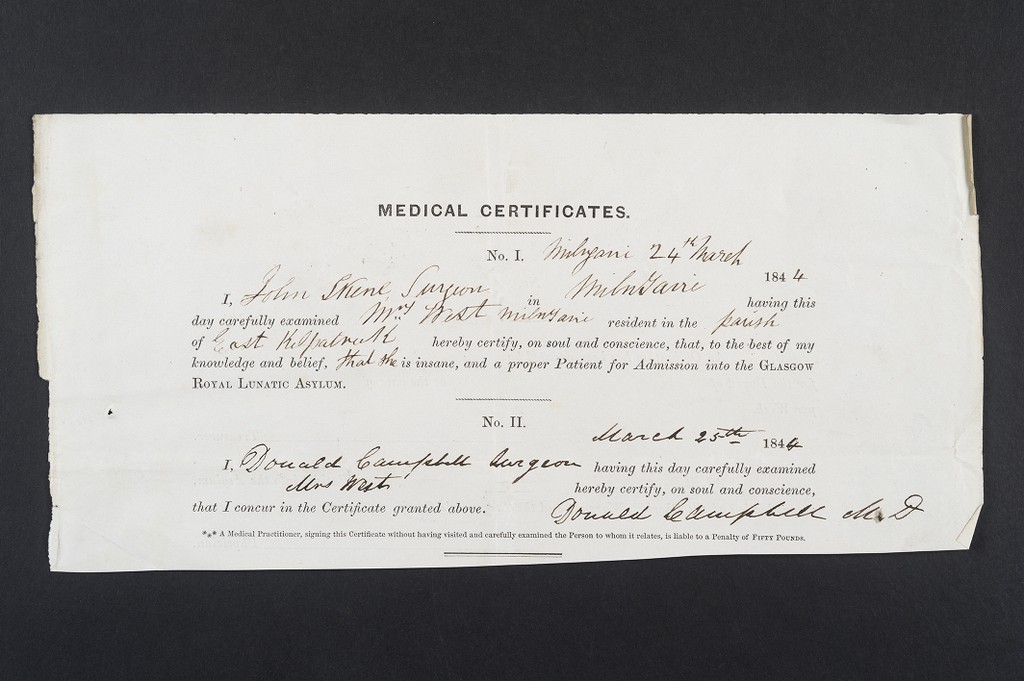 MEDICAL CERTIFICATES.
No. I. Milngavie 24th March
1844
I, John Skene, Surgeon in Milngavie having this
day carefully examined Mrs West Milngavie resident in the parish
of East Kilpatrick hereby certify, on soul and conscience, that, to the best of my
knowledge and belief, that she is insane, and a proper Patient for Admission into the GLASGOW
ROYAL LUNATIC ASYLUM.
No. II.
March 25th 1844
I, Donald Campbell Surgeon having this day carefully examined
Mrs West hereby certify, on soul and conscience,
that I concur in the Certificate granted above. Donald Campbell M.D
*** A Medical Practitioner, signing this Certificate without having visited and carefully examined the Person to whom it relates, is liable to a Penalty of FIFTY POUNDS.